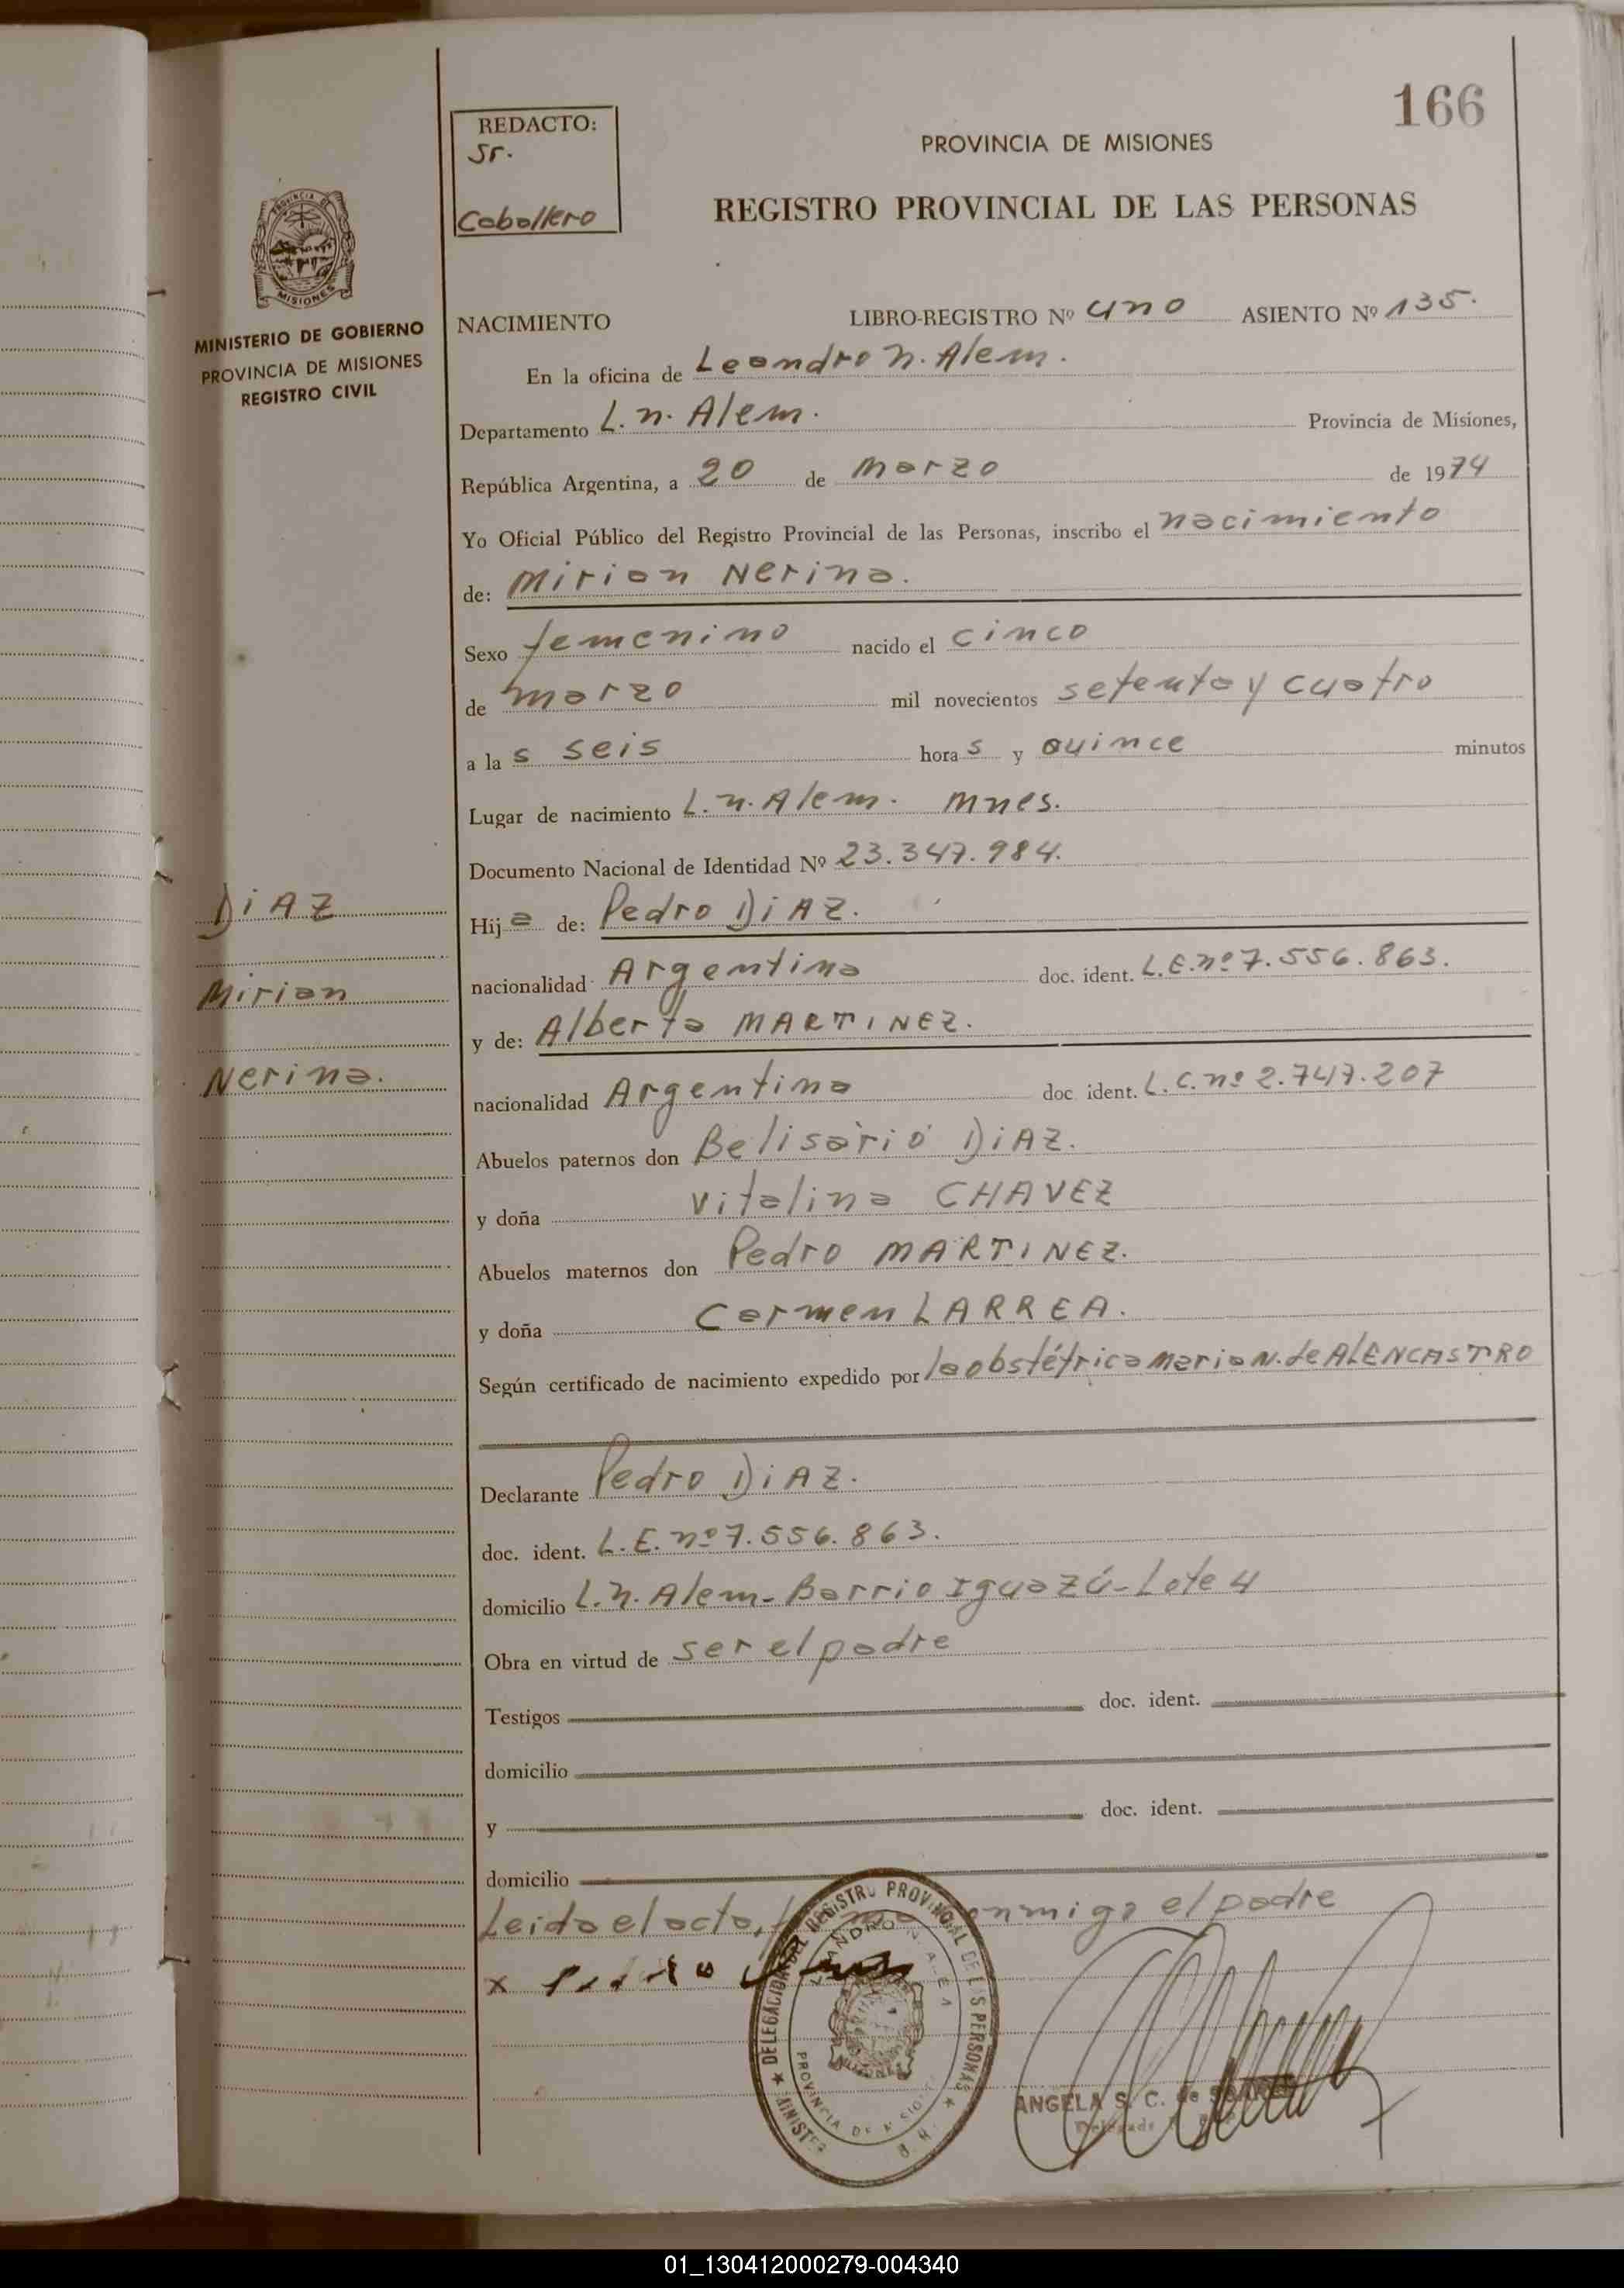 166
REDACTO:
Sr.
Caballero
PROVINCIA DE MISIONES
REGISTRO PROVINCIAL DE LAS PERSONAS
PROVINCIA DE
MISIONES
MINISTERIO DE GOBIERNO
PROVINCIA DE MISIONES
REGISTRO CIVIL
NACIMIENTO LIBRO-REGISTRO Nº uno ASIENTO Nº 135.
En la oficina de Leandro N. Alem.
Departamento L. N. Alem. Provincia de Misiones,
República Argentina, a 20 de Marzo de 1974
Yo Oficial Público del Registro Provincial de las Personas, inscribo el nacimiento
de: Mirian Nerina.
Sexo femenino nacido el cinco
de marzo mil novecientos setenta y cuatro
a la s seis hora s y quince minutos
Lugar de nacimiento L. N. Alem. Mnes.
Documento Nacional de Identidad Nº 23.347.984.
DIAZ
Mirian
Nerina.
Hij a de: Pedro DIAZ.
nacionalidad Argentina doc. ident. L.E. nº 7.556.863.
y de: Alberta MARTINEZ.
nacionalidad Argentina doc. ident. L.C. nº 2.747.207
Abuelos paternos don Belisario DIAZ.
y doña Vitalina CHAVEZ
Abuelos maternos don Pedro MARTINEZ.
y doña Carmen LARREA.
Según certificado de nacimiento expedido por la obstétrica Maria N. de ALENCASTRO
Declarante Pedro DIAZ.
doc. ident. L.E. nº 7.556.863.
domicilio L. N. Alem - Barrio Iguazú - Lote 4
Obra en virtud de ser el padre
Testigos doc. ident.
domicilio
y doc. ident.
domicilio
Leida el acta, conmigo el padre
x Pedro
DELEGACION DEL REGISTRO PROVINCIAL DE LAS PERSONAS
LEANDRO N. ALEM
PROVINCIA DE MISIONES
ANGELA S. C. de
01_130412000279-004340